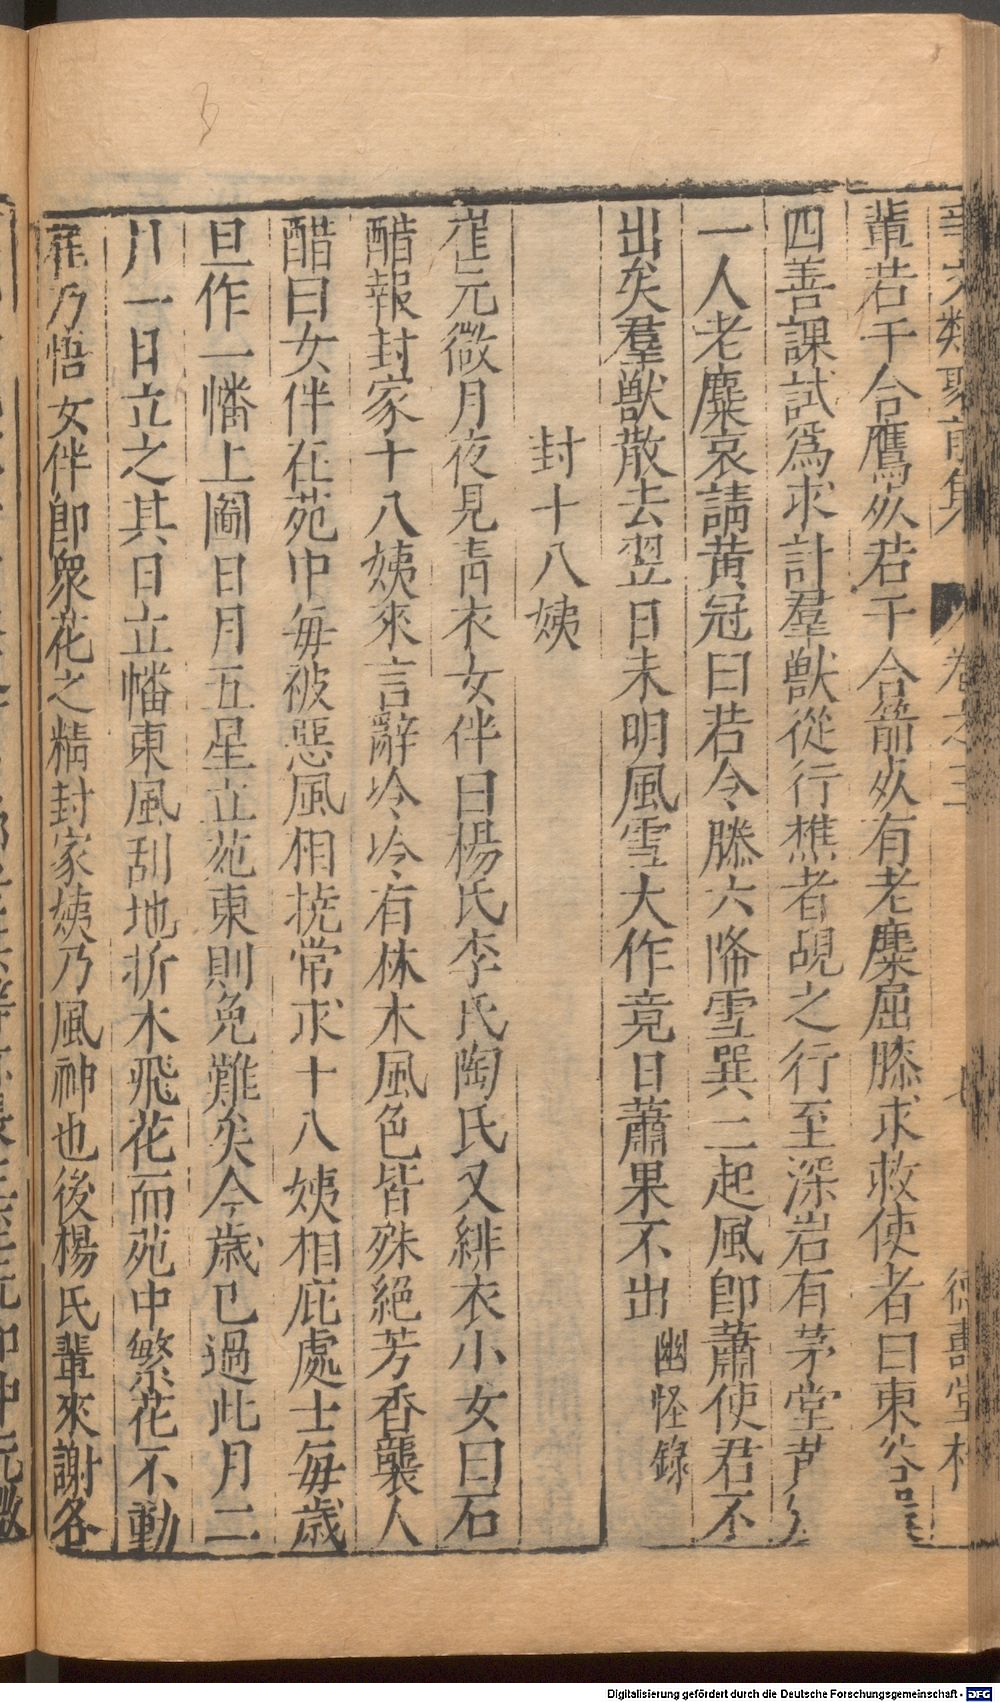 事文類聚前集 卷之三 德壽堂梓
輩若干合鷹死若干合箭死有老麋屈膝求救使者曰東谷嚴
四善課試爲求計羣獸從行樵者覘之行至深岩有茅堂
一人老麋哀請黄冠曰若令滕六降雪巽二起風卽蕭使君不
出矣羣獸散去翌日未明風雪大作竟日蕭果不出 幽怪錄
封十八姨
崔元微月夜見靑衣女伴曰楊氏李氏陶氏又緋衣小女曰石
醋報封家十八姨來言辭冷冷有林木風色皆殊絕芳香襲人
醋曰女伴在苑中每被惡風相撓常求十八姨相庇處士每歲
旦作一幡上圖日月五星立苑東則免難矣今歲已過此月二
月一日立之其日立幡東風刮地折木飛花而苑中繁花不動
崔乃悟女伴卽衆花之精封家姨乃風神也後楊氏輩來謝各
Digitalisierung gefördert durch die Deutsche Forschungsgemeinschaft - DFG